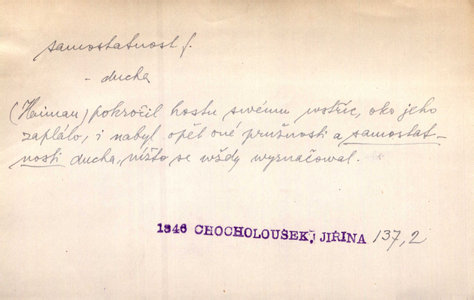 samostatnost f.
- ducha
(Heiman) pokročil hostu swému wstříc, oko jeho
zaplálo, i nabyl opět oné pružnosti a samostat-
nosti ducha, nížto se wždy wyznačowal.
1846 CHOCHOLOUŠEK, JIŘINA 137,2